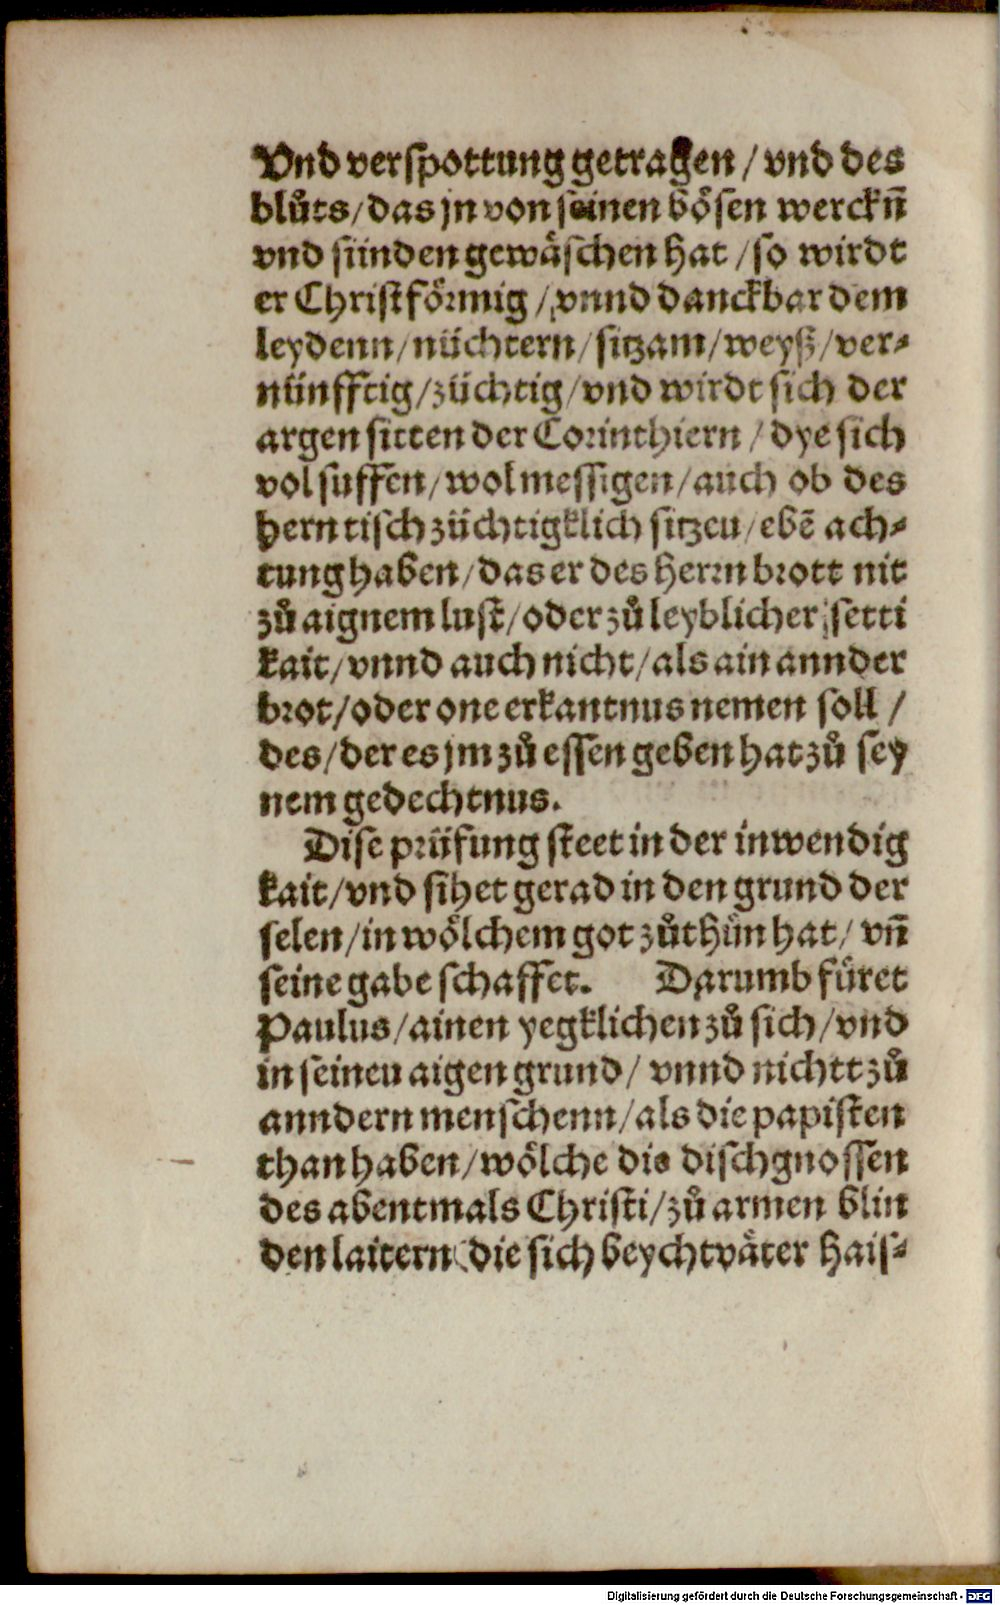 Vnd verspottung getragen / vnd des
blůts / das jn von seinen bösen werckn̄
vnd sünden gewäschen hat / so wirdt
er Christförmig / vnnd danckbar dem
leydenn / nüchtern / sitzam / weyß / ver⸗
nünfftig / züchtig / vnd wirdt sich der
argen sitten der Corinthiern / dye sich
vol suffen / wol messigen / auch ob des
hern tisch züchtigklich sitzeu / ebē ach⸗
tung haben / das er des herrn brott nit
zů aignem lust / oder zů leyblicher setti
kait / vnnd auch nicht / als ain annder
brot / oder one erkantnus nemen soll /
des / der es jm zů essen geben hat zů sey
nem gedechtnus.
Dise prüfung steet in der inwendig
kait / vnd sihet gerad in den grund der
selen / in wölchem got zů thůn hat / vn̄
seine gabe schaffet. Darumb füret
Paulus / ainen yegklichen zů sich / vnd
in seineu aigen grund / vnnd nichtt zů
anndern menschenn / als die papisten
than haben / wölche die dischgnossen
des abentmals Christi / zů armen blin
den laitern (die sich beychtväter hais⸗
Digitalisierung gefördert durch die Deutsche Forschungsgemeinschaft - DFG